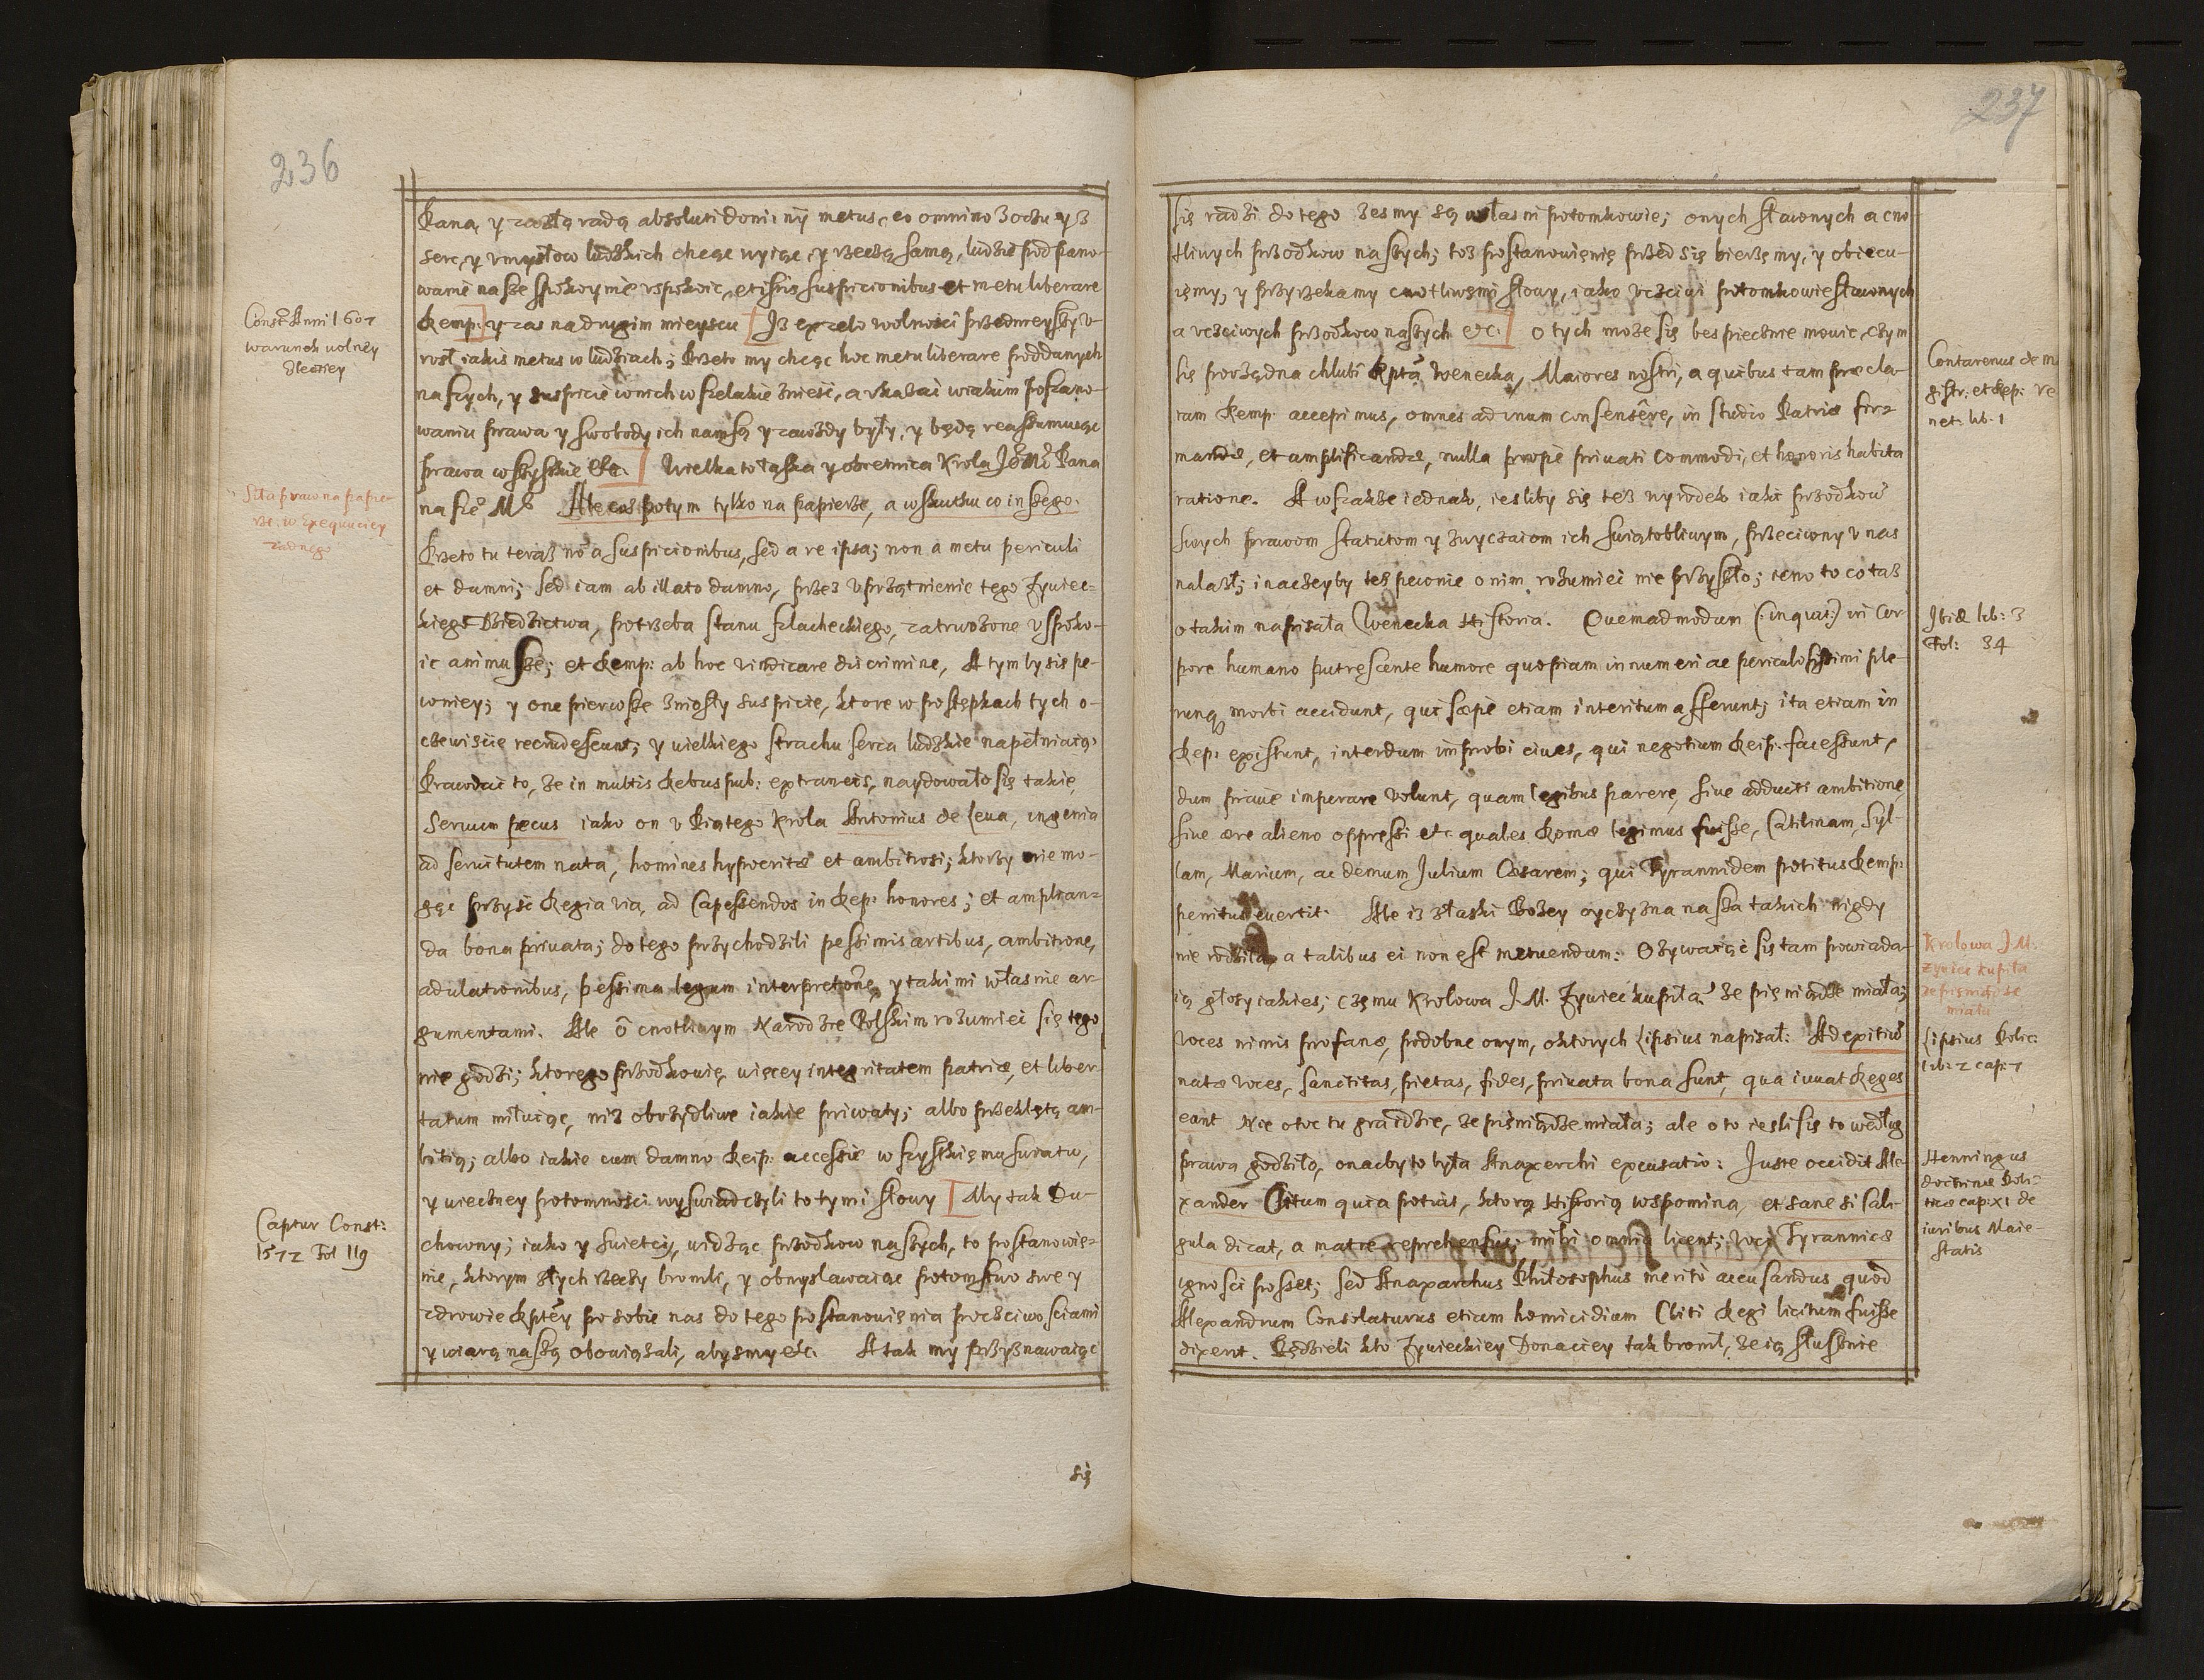 236
Pana, y za złą radą absoluti dominij metus, eo omnino z oczu y z
serc, y vmysłow ludzkich chcąc wyiąc, y rzeczą samą, ludzie pod pano-
wanie nasze spokoynie vspokoic, et istis suspicionibus et metu liberare
Remp: y zas na drugim mieyscu Iż ex zelo wolności przednieyszy v-
rosł iakis metus w ludziach; Przeto my chcąc hoc metu liberare poddanych
naszych, y suspicie w nich wszelakie znieść, a vkazać w iakim poszano-
waniu prawa y swobody ich nam są y zawżdy były, y będą reassumuiąc
prawa wszystkie etc. Wielka to łaska y obietnica Krola Je Mci Pana
nasze° Mł Ale cos potym tylko na papierze, a w skutku co inszego.
Przeto tu teraz no a suspicionibus, sed a re ipsa; non a metu periculi
et damni; sed iam ab illato damno, przez vprzątnienie tego Zywiec-
kiego Dziedzictwa, potrzeba stanu szlacheckiego, zatrwożone vspoko-
ic animusze; et Remp: ab hoc vindicare discrimine, A tym by sie pe-
wniey; y one pierwsze zniosły suspicie, ktore w postępkach tych o-
czewiscie recrudescunt; y wielkiego strachu serca ludzkie napełniaią.
Prawdać to, że in multis Rebuspub: extraneis, naydowało się takie,
Servum pecus iako on v Piątego Krola Antonius de Leua, ingenia
ad seruitutem nata, homines hypocritæ et ambitiosi; ktorzy nie mo-
gąc przyść Regia via, ad Capessendos in Rep: honores; et amplian-
da bona priuata; do tego przychodzili pessimis artibus, ambitione,
adulationibus, pessima legum interpretone, y takimi własnie ar-
gumentami. Ale o cnotliwym Narodzie Polskim rozumiec się tego
nie godzi; ktorego przodkowie, więcey integritatem patriæ, et liber-
tatum miłuiąc, niż obrzydliwe iakie priwaty; albo przeklętą am-
bitią; albo iakie cum damno Reip: accessie wszystkiemu swiatu,
y wieczney potomności wyswiadczyli to tymi słowy My tak Du-
chowny; iako y Swietcy, widząc przodkow naszych, to postanowie-
nie, ktorym złych rzeczy bronili, y obmyslawaiąc potomstwo swe y
zdrowie Rptey po sobie nas do tego postanowienia poczciwosciami
y wiarą naszą obowiązali, abysmy etc. A tak my przyznawaiąc
się
Const Anni 1607
warunek wolney
Electiey
Siła praw na papie-
rze. w Exequuciey
zadnego
Captur Const:
1572 Fol 119
237
się radzi do tego zesmy są własni potomkowie; onych sławnych a cno-
tliwych przodkow naszych; toż postanowienie przed się bierzemy, y obiecu-
iemy, y przyrzekamy cnotliwemi słowy, iako vczciwi potomkowie sławnych
a vczciwych przodkow naszych etc. o tych może się bespiecznie mowic, czym
się porządna chlubi Rpta Wenecka, Maiores nostri, a quibus tam præcla-
ram Remp: accepimus, omnes ad unum consensere, in studio Patriæ fir-
mandæ, et amplificandæ, nulla prope priuati Commodi, et honoris habita
ratione. A wszakże iednak, iesliby się też wyrodek iaki przodkow
swych prawom statutom y zwyczaiom ich swiątobliwym, przeciwny v nas
nalazł; inaczeyby też pewnie o nim rozumiec nie przyszło; ieno to co taż
o takim napisała Wenecka Historia. Quemadmodum (: inquit:) in cor-
pore humano putrescente humore quopiam innumeri ac periculosissimi ple-
runq morbi accidunt, qui sæpè etiam interitum afferunt; ita etiam in
Rep: existunt, interdum improbi ciues, qui negotium Reip: facessunt,
dum praue imperare volunt, quam legibus parere, siue adducti ambitione
siue ære alieno oppressi etc. quales Romæ legimus fuisse, Catilinam, Syl-
lam, Marium, ac demum Julium Cæsarem; qui Tyrannidem potitus Remp:
penitus euertit. Ale iż z łaski Bożey oyczyzna nasza takich nigdy
nie rodziła, a talibus ei non est metuendum: Ozywaiąć się tam powiada-
ią głosy iakies; Czemu Krolowa J. M. Zywiec kupiła? że pieniądze miała;
voces nimis profanæ, podobne onym, o ktorych Lipsius napisał: Ad exitium
natæ voces, sanctitas, pietas, fides, priuata bona sunt, qua iuuat Reges
eant Nie otoc tu gra idzie, że pieniądze miała; ale o to iesli się to według
prawa godziło, onaćby to była Anaxerchi excusatio: Juste occidit Ale-
xander Clitum quia potuit, ktorą Historią wspomina, et sane si Cali-
gula dicat, a matre reprehensus; mihi omnia licent; voci Tyrannicæ
ignosci posset; sed Anaxarchus Philosophus meritò accusandus quod
Alexandrum Consolaturus etiam homicidium Cliti Regi licitum fuisse
dixerit. Będzieli kto Zywieckiey Donaciey tak bronił, że ią słusznie
Contarenus de ma
gistr: et Rep: Ve
net: lib: 1
Ibid lib: 3
Fol: 34
Krolowa J M.
Zywiec kupiła
że pieniądze
miała
Lipsius Polic:
lib: 2 cap: 7
Henningus
doctrinæ Poli-
ticæ cap: XI de
iuribus Maie-
statis